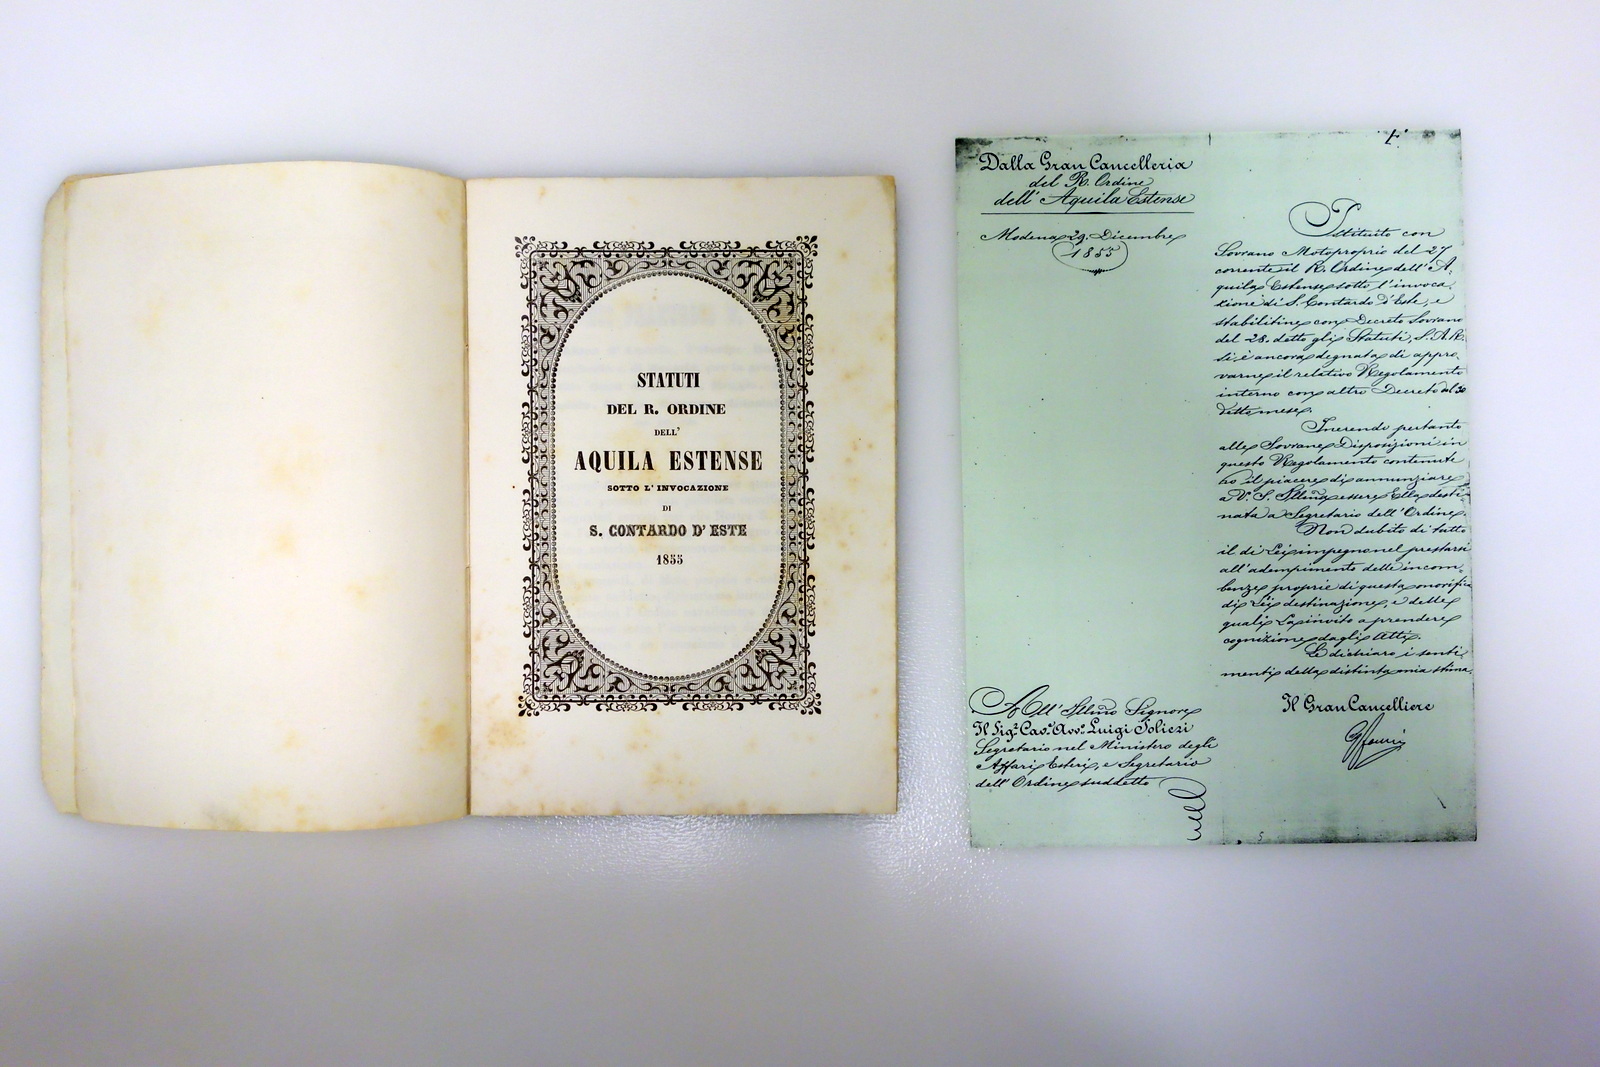 STATUTI
DEL R. ORDINE
DELL'
AQUILA ESTENSE
SOTTO L'INVOCAZIONE
DI
S. CONTARDO D'ESTE
1855
Dalla Gran Cancelleria
del R. Ordine
dell'Aquila Estense
Modena 29. Dicembre
1855
Istituito con
Sovrano Motoproprio del 27
corrente il R. Ordine dell'A-
quila Estense sotto l'invoca-
zione di S. Contardo d'Este, e
stabilitine con Decreto Sovrano
del 28. detto gli Statuti, S. A. R.
si è ancora degnata di appro-
varne il relativo Regolamento
interno con altro Decreto del
detto mese.
Inerendo pertanto
alle Sovrane Disposizioni in
questo Regolamento contenute
ho il piacere di annunziare
a V. S. Illma essere Ella desti-
nata a Segretario dell'Ordine.
Non dubito di tutto
il di Lei impegno nel prestarsi
all'adempimento delle incom-
benze proprie di questa onorifica
di Lei destinazione, e delle
quali La invito a prendere
cognizione dagli Atti.
Le dichiaro i senti-
menti della distinta mia stima.
Il Gran Cancelliere
All'Illmo Signore
Il Sigr. Cavo. Avvo. Luigi
Segretario nel Ministero degli
Affari Esteri, e Segretario
dell'Ordine suddetto